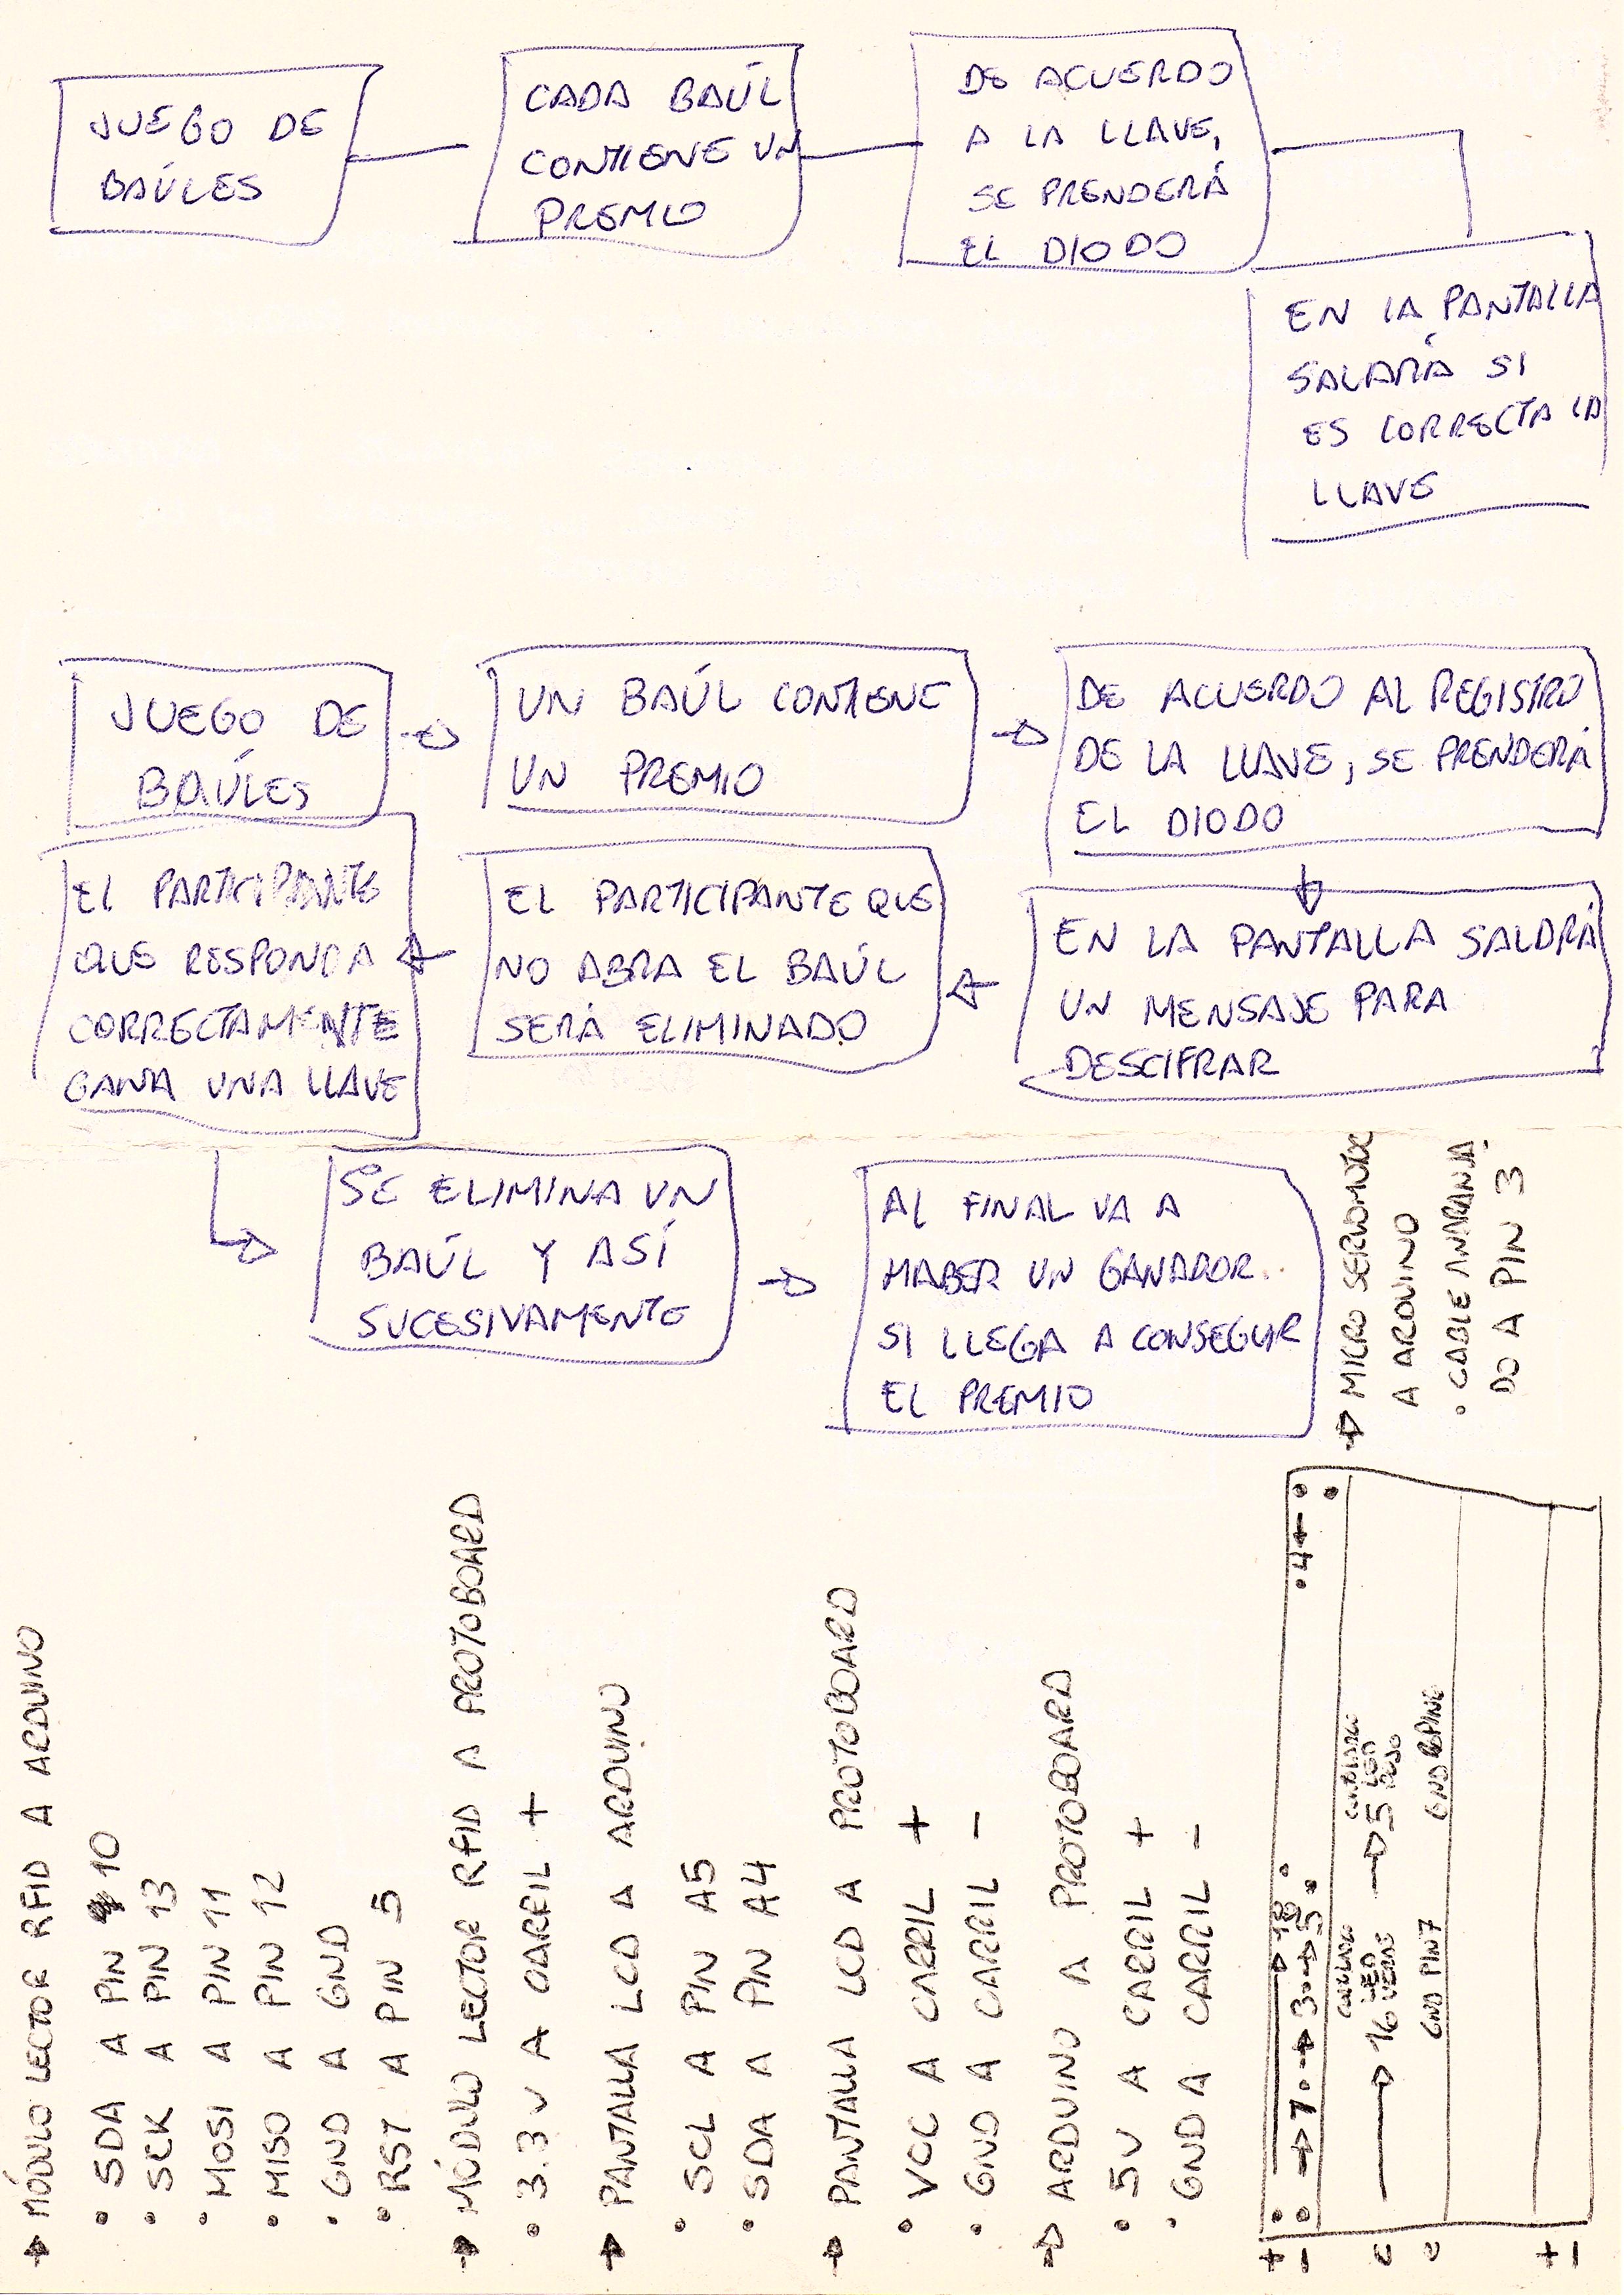 JUEGO DE
BAÚLES
CADA BAÚL
CONTIENE UN
PREMIO
DE ACUERDO
A LA LLAVE,
SE PRENDERÁ
EL DIODO
EN LA PANTALLA
SALDRÁ SI
ES CORRECTA LA
LLAVE
JUEGO DE
BAÚLES
UN BAÚL CONTIENE
UN PREMIO
DE ACUERDO AL REGISTRO
DE LA LLAVE, SE PRENDERÁ
EL DIODO
EN LA PANTALLA SALDRÁ
UN MENSAJE PARA
DESCIFRAR
EL PARTICIPANTE QUE
NO ABRA EL BAÚL
SERÁ ELIMINADO
EL PARTICIPANTE
QUE RESPONDA
CORRECTAMENTE
GANA UNA LLAVE
SE ELIMINA UN
BAÚL Y ASÍ
SUCESIVAMENTE
AL FINAL VA A
HABER UN GANADOR
SI LLEGA A CONSEGUIR
EL PREMIO
→ MÓDULO LECTOR RFID A ARDUINO
• SDA A PIN 10
• SCK A PIN 13
• MOSI A PIN 11
• MISO A PIN 12
• GND A GND
• RST A PIN 5
→ MÓDULO LECTOR RFID A PROTOBOARD
• 3.3V A CARRIL +
→ PANTALLA LCD A ARDUINO
• SCL A PIN A5
• SDA A PIN A4
→ PANTALLA LCD A PROTOBOARD
• VCC A CARRIL +
• GND A CARRIL -
→ ARDUINO A PROTOBOARD
• 5V A CARRIL +
• GND A CARRIL -
→ MICRO SERVOMOTOR
A ARDUINO
• CABLE ANARANJA
DO A PIN 3
+ → 18
- → 7 → 3 → 5 4 ←
→ 16 LED VERDE → 5 LED ROJO
C GND PIN 7 GND
+
-